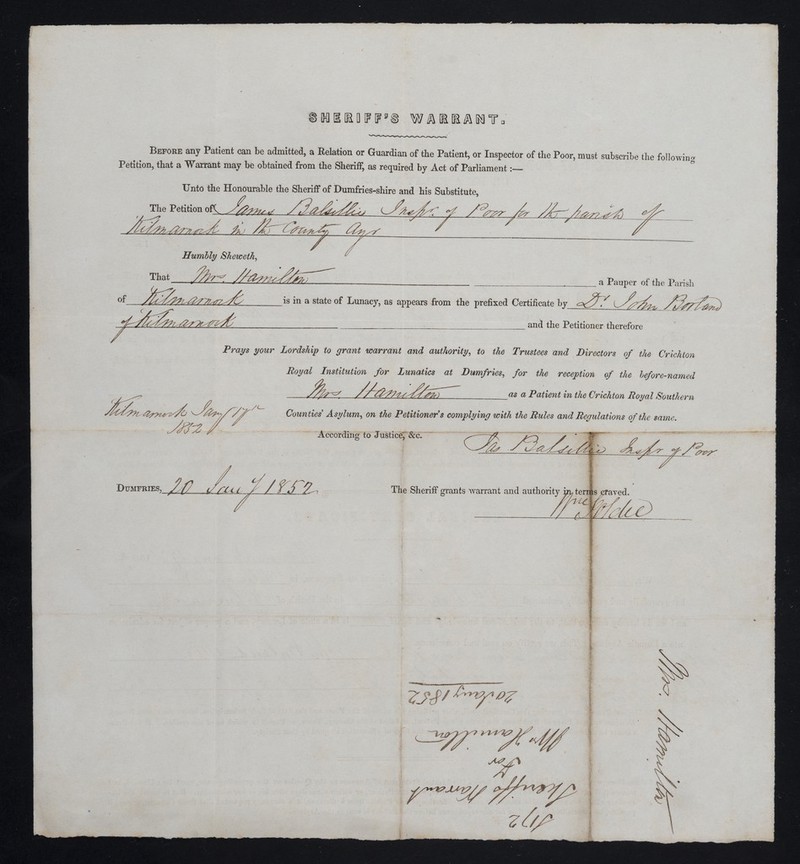 SHERIFF'S WARRANT.
BEFORE any Patient can be admitted, a Relation or Guardian of the Patient, or Inspector of the Poor, must subscribe the following
Petition, that a Warrant may be obtained from the Sheriff, as required by Act of Parliament :—
Unto the Honourable the Sheriff of Dumfries-shire and his Substitute,
The Petition of James Balsillie Inspr. of Poor for the parish of
Kilmarnock in the County Ayr
Humbly Sheweth,
That Mrs Hamilton a Pauper of the Parish
of Kilmarnock is in a state of Lunacy, as appears from the prefixed Certificate by Dr John Borland
of Kilmarnock and the Petitioner therefore
Prays your Lordship to grant warrant and authority, to the Trustees and Directors of the Crichton
Royal Institution for Lunatics at Dumfries, for the reception of the before-named
Mrs. Hamilton as a Patient in the Crichton Royal Southern
Counties' Asylum, on the Petitioner's complying with the Rules and Regulations of the same.
Kilmarnock Jany 17th
1852
According to Justice, &c.
Jas Balsillie Inspr of Poor
DUMFRIES, 20 Jany 1852 The Sheriff grants warrant and authority in terms craved.
Goldie
Mrs. Hamilton
Sheriffs Warrant
For
Mrs Hamilton
20 Jany 1852